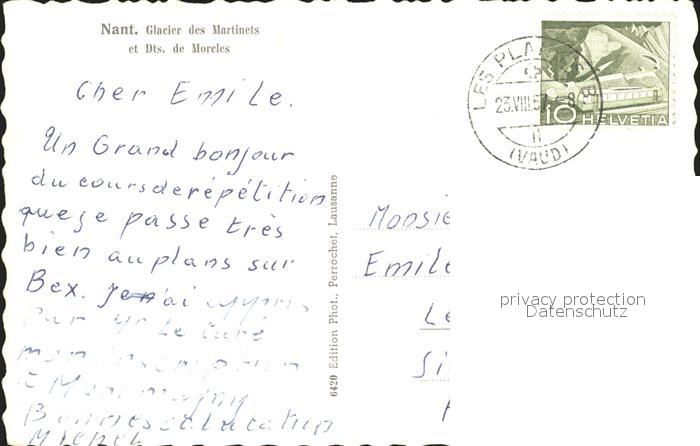 Nant. Glacier des Martinets
et Dts. de Morcles
Cher Emile.
Un Grand bonjour
du cours de répétition
que je passe très
bien au plans sur
Bex. Je n'ai appris
Par Mr Le Curé
mon inscription
Bonnes et
Michel
6420 Edition Phot., Perrochet, Lausanne
LES PLANS S. BEX
23.VIII.5
8
(VAUD)
10 HELVETIA
Monsie
Emile
Le
Si
privacy protection
Datenschutz